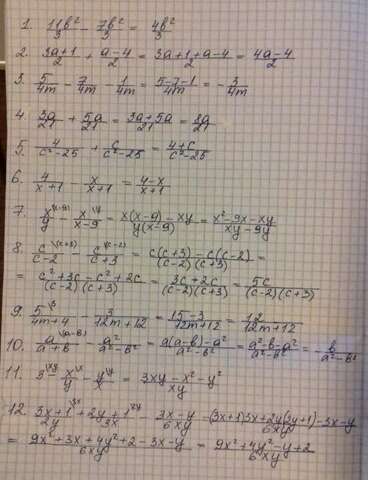 1. 11b²/3 - 7b²/3 = 4b²/3
2. 3a+1/2 + a-4/2 = 3a+1+a-4/2 = 4a-4/2
3. 5/4m - 7/4m - 1/4m = 5-7-1/4m = -3/4m
4. 3a/21 + 5a/21 = 3a+5a/21 = 8a/21
5. 4/c²-25 + c/c²-25 = 4+c/c²-25
6. 4/x+1 - x/x+1 = 4-x/x+1
7. x\(x-9)/y - x\y/x-9 = x(x-9)-xy/y(x-9) = x²-9x-xy/xy-9y
8. c\(c+3)/c-2 - c\(c-2)/c+3 = c(c+3)-c(c-2)/(c-2)(c+3) =
= c²+3c-c²+2c/(c-2)(c+3) = 3c+2c/(c-2)(c+3) = 5c/(c-2)(c+3)
9. 5\3/4m+4 - 3/12m+12 = 15-3/12m+12 = 12/12m+12
10. a\(a-b)/a+b - a²/a²-b² = a(a-b)-a²/a²-b² = a²-b-a²/a²-b² = - b/a²-b²
11. 3\xy - x\x/y - y\y/x = 3xy-x²-y²/xy
12. 3x+1\3x/2y + 2y+1\2y/3x - 3x-y/6xy = (3x+1)3x+2y(2y+1)-3x-y/6xy
= 9x²+3x+4y²+2-3x-y/6xy = 9x²+4y²-y+2/6xy